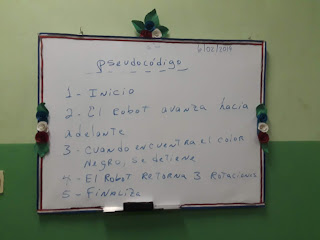 6/02/2019
Pseudocódigo
1 - Inicio
2 - El Robot avanza hacia
adelante
3 - Cuando encuentra el color
Negro, se detiene
4 - El Robot Retorna 3 Rotaciones
5 - Finaliza